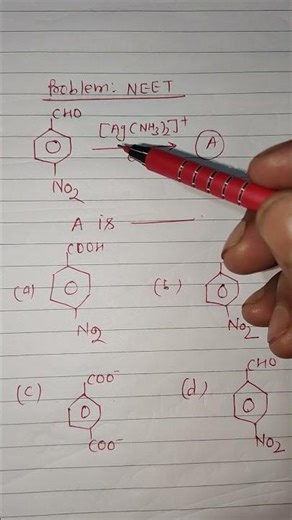 Problem: NEET
CHO
[Ag(NH3)2]+
A
NO2
A is
COOH
(a)
(b)
NO2
NO2
COO-
CHO
(c)
(d)
COO-
NO2